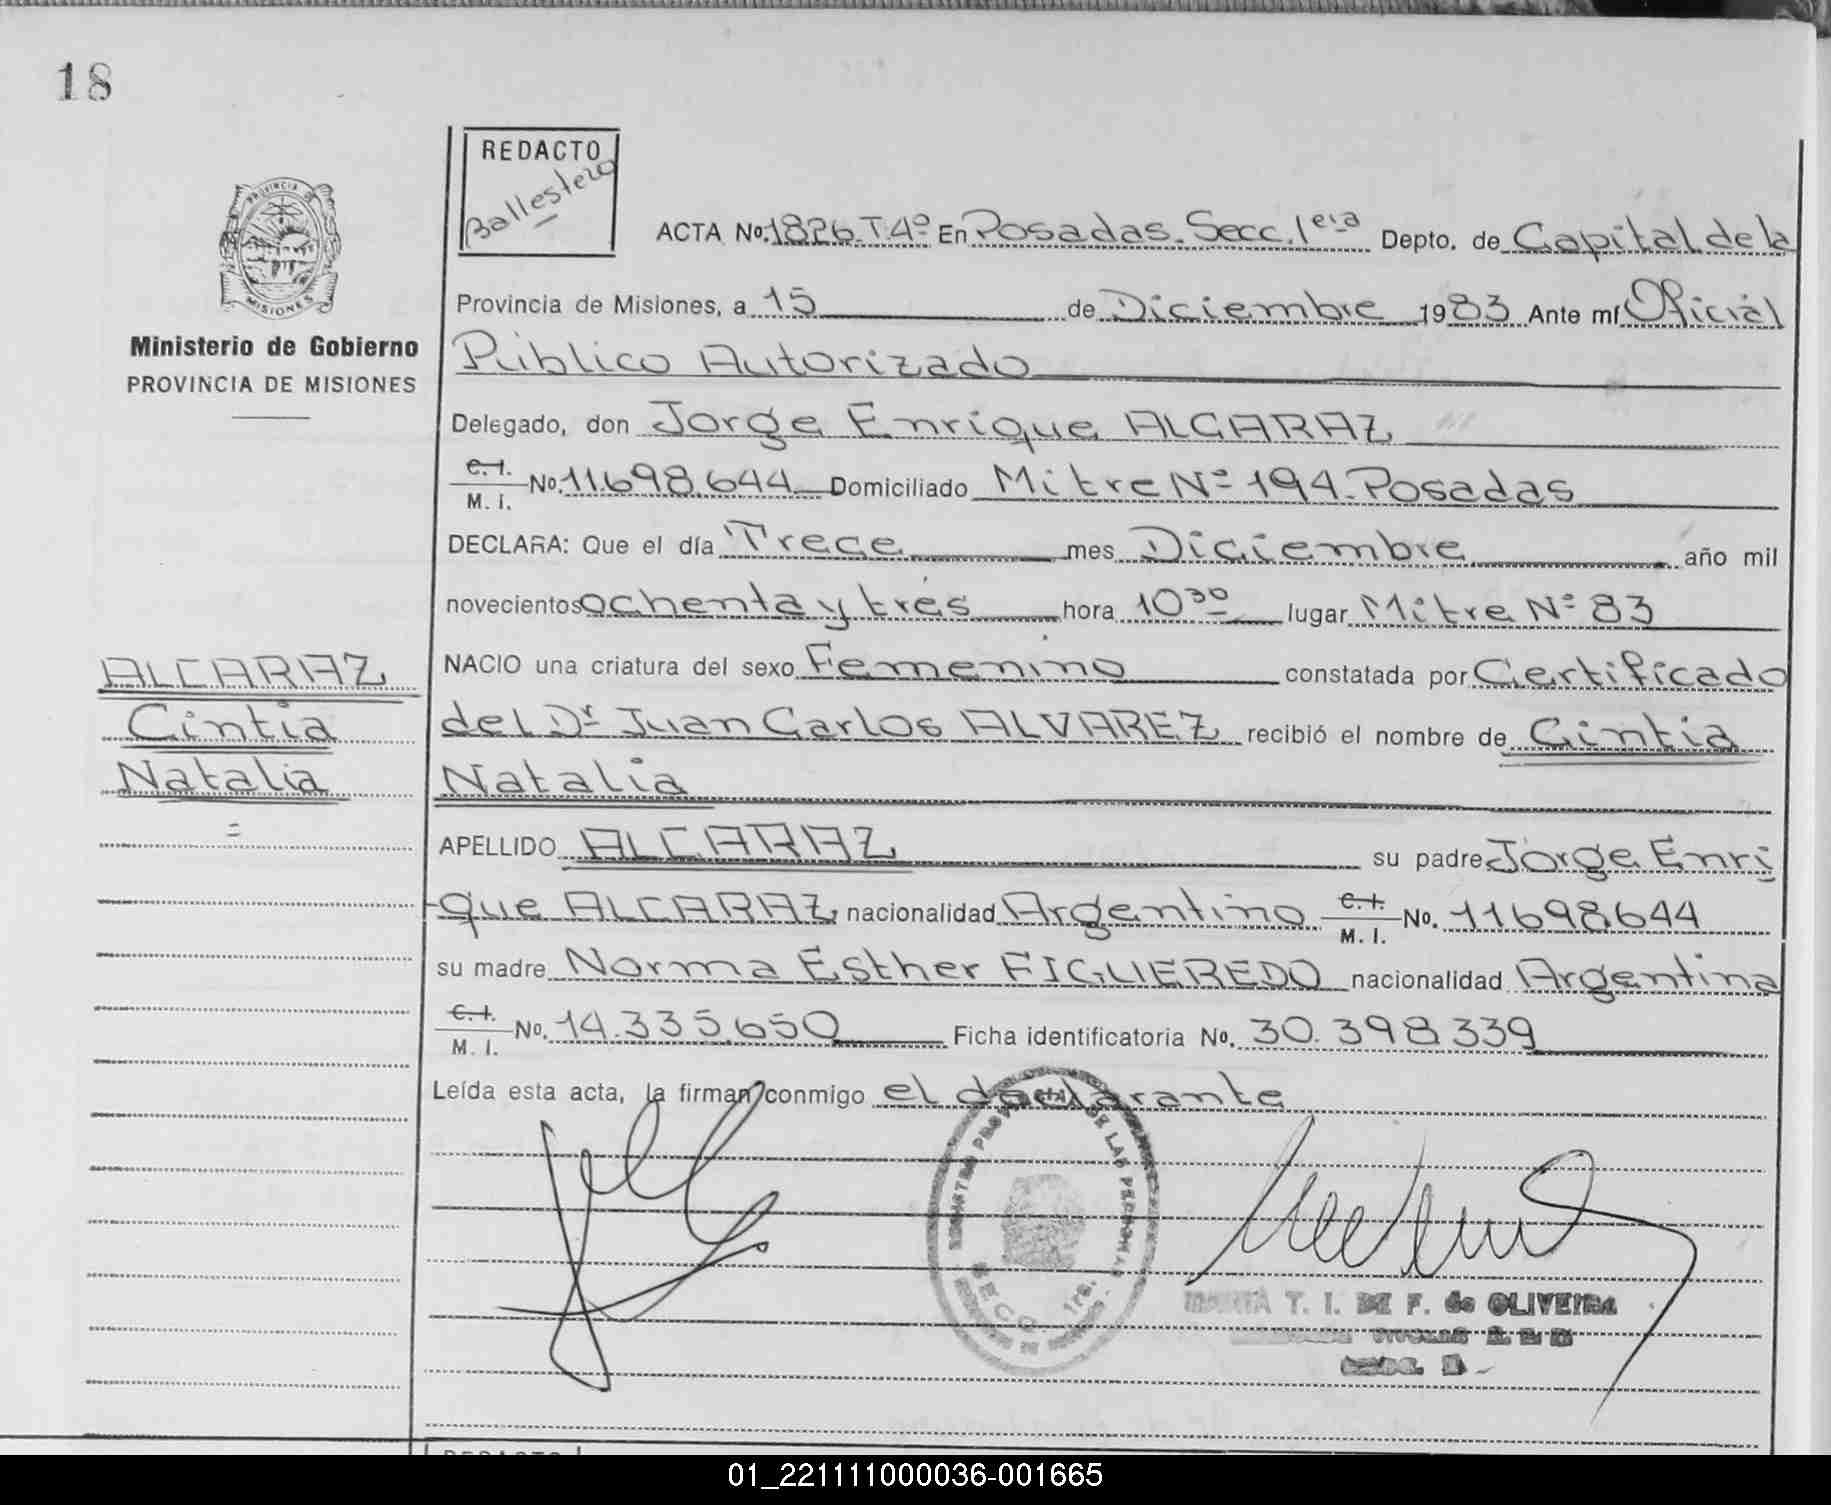 18
REDACTO
Ballestero
ACTA No. 1826. T. 4º En Posadas. Secc. 1era Depto. de Capital de la
Provincia de Misiones, a 15 de Diciembre 1983 Ante mí Oficial
Público Autorizado
Delegado, don Jorge Enrique ALCARAZ
C. I.
M. I. No. 11.698.644 Domiciliado Mitre Nº 194. Posadas
DECLARA: Que el día Trece mes Diciembre año mil
novecientos ochenta y tres hora 10 30 lugar Mitre Nº 83
NACIO una criatura del sexo Femenino constatada por Certificado
del Dr Juan Carlos ALVAREZ recibió el nombre de Cintia
Natalia
APELLIDO ALCARAZ su padre Jorge Enri
que ALCARAZ nacionalidad Argentino C. I.
M. I. No. 11698.644
su madre Norma Esther FIGUEREDO nacionalidad Argentina
C. I.
M. I. No. 14.335.650 Ficha identificatoria No. 30.398.339
Leída esta acta, la firman conmigo el declarante
PROVINCIA DE
MISIONES
Ministerio de Gobierno
PROVINCIA DE MISIONES
ALCARAZ
Cintia
Natalia
=
DE LAS PERSONAS
SECC. 1ra.
T. I. DE F. de OLIVEIRA
01_221111000036-001665